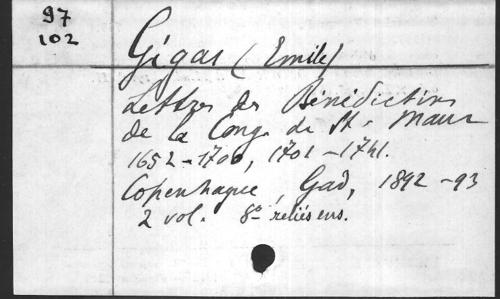 97
102
Gigas (Emile)
Lettres des Bénédictins
de la Cong. de St-Maur
1652-1700, 1701-1741.
Copenhague, Gad, 1892-93
2 vol. 8º reliés ens.